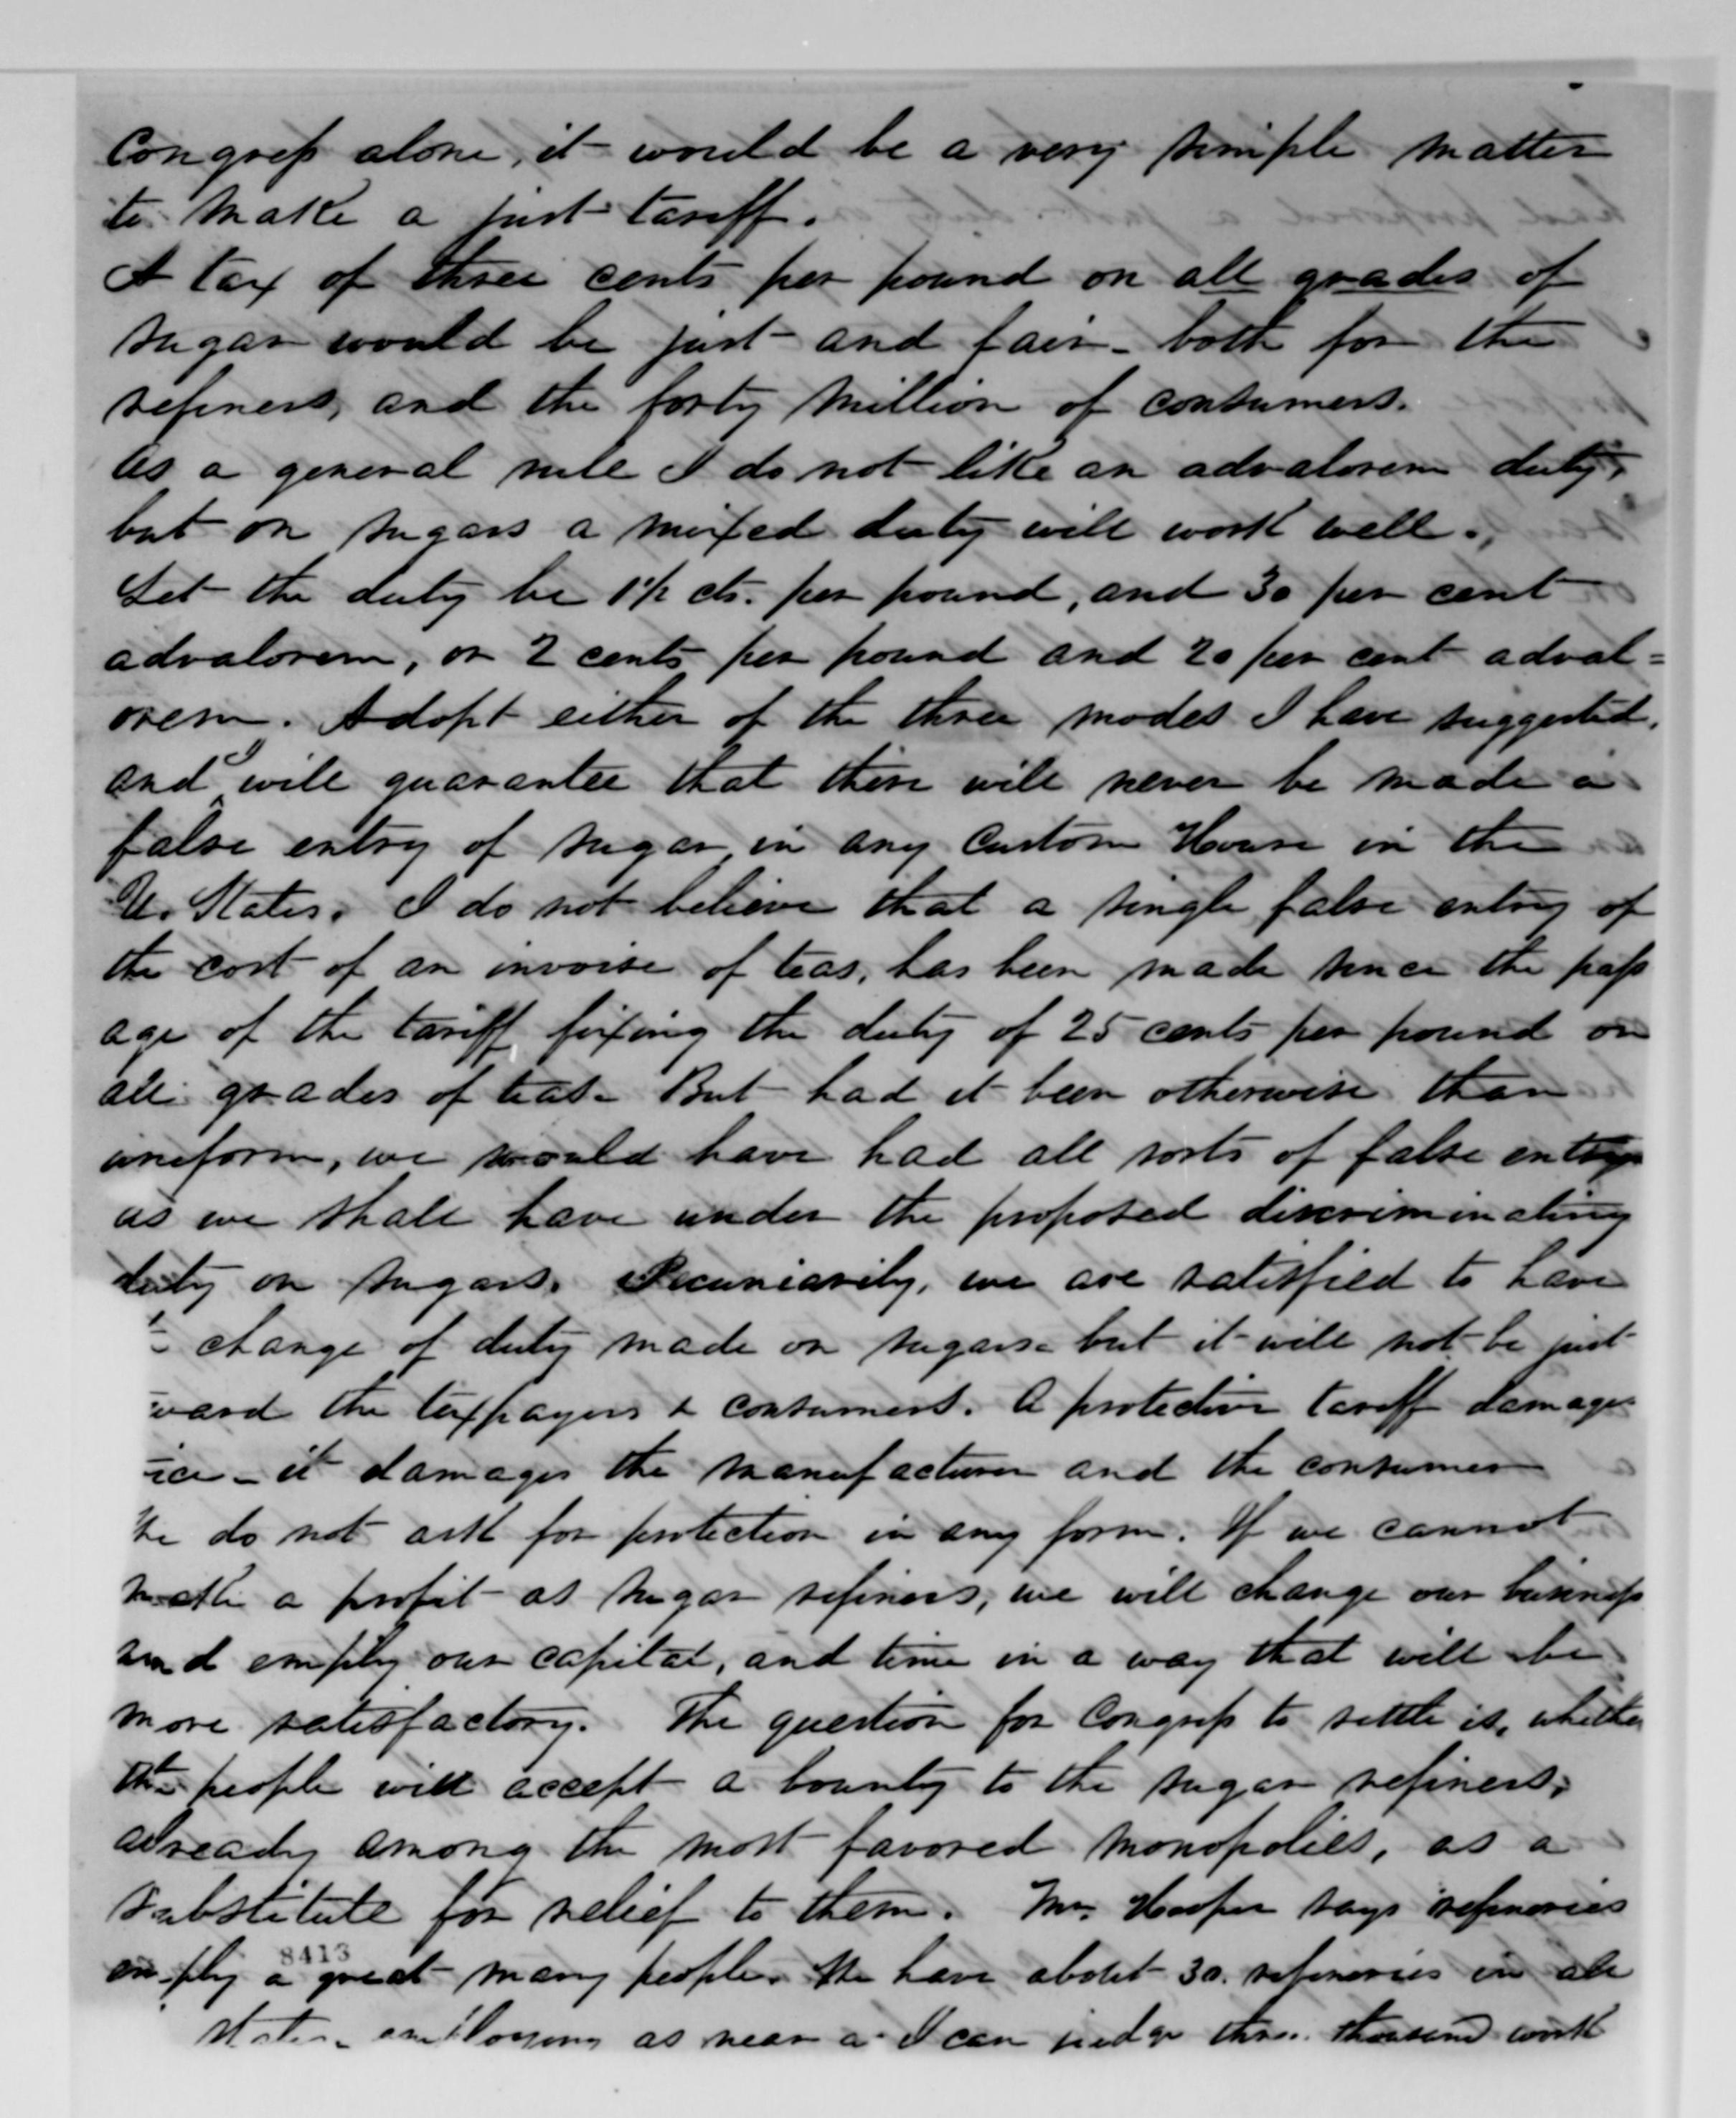 Congress alone, it would be a very simple matter
to make a just tariff.
A tax of three cents per pound on all grades of
sugar would be just and fair - both for the
refiners, and the forty million of consumers.
As a general rule I do not like an advalorem duty,
but on sugars a mixed duty will work well.
Let the duty be 1½ cts. per pound, and 30 per cent
advalorem, or 2 cents per pound and 20 per cent adval=
orem. Adopt either of the three modes I have suggested,
and I will guarantee that there will never be made a
false entry of sugar, in any Custom House in the
U. States. I do not believe that a single false entry of
the cost of an invoise of teas, has been made since the pass
age of the tariff, fixing the duty of 25 cents per pound on
all grades of teas - But had it been otherwise than
uniform, we would have had all sorts of false entrys
as we shall have under the proposed discriminating
duty on sugars. Pecuniarily, we are satisfied to have
change of duty made on sugars - but it will not be just
ward the taxpayers & consumers. A protective tariff damages
ice - it damages the manufacturer and the consumer
We do not ask for protection in any form. If we cannot
make a profit as sugar refiners, we will change our business
and employ our capital, and time in a way that will be
more satisfactory. The question for Congress to settle is, whether
the people will accept a bounty to the sugar refiners,
already among the most favored monopolies, as a
substitute for relief to them. Mr. Hooper says refineries
employ a great many people. We have about 30 refineries in all
8413
States - employing as near as I can judge three thousand work